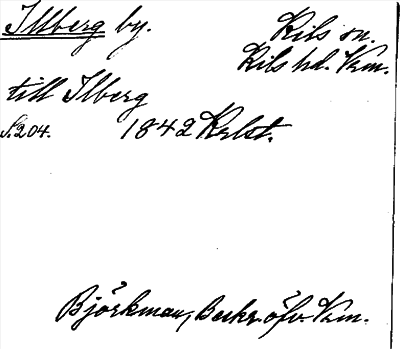 Illberg by. Kils sn.
Kils hd. Vrm.
till Ilberg
S. 204. 1842 Krlst.
Björkman, Beskr. öfv. Vrm.